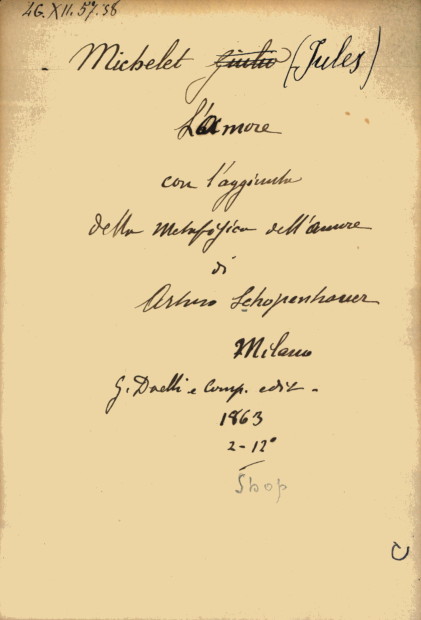 4G. XII. 57. 38
Michelet Giulio (Jules)
L'amore
con l'aggiunta
della Metafisica dell'amore
di
Arturo Schopenhauer
Milano
G. Daelli e Comp. edit.
1863
2-12°
Shop